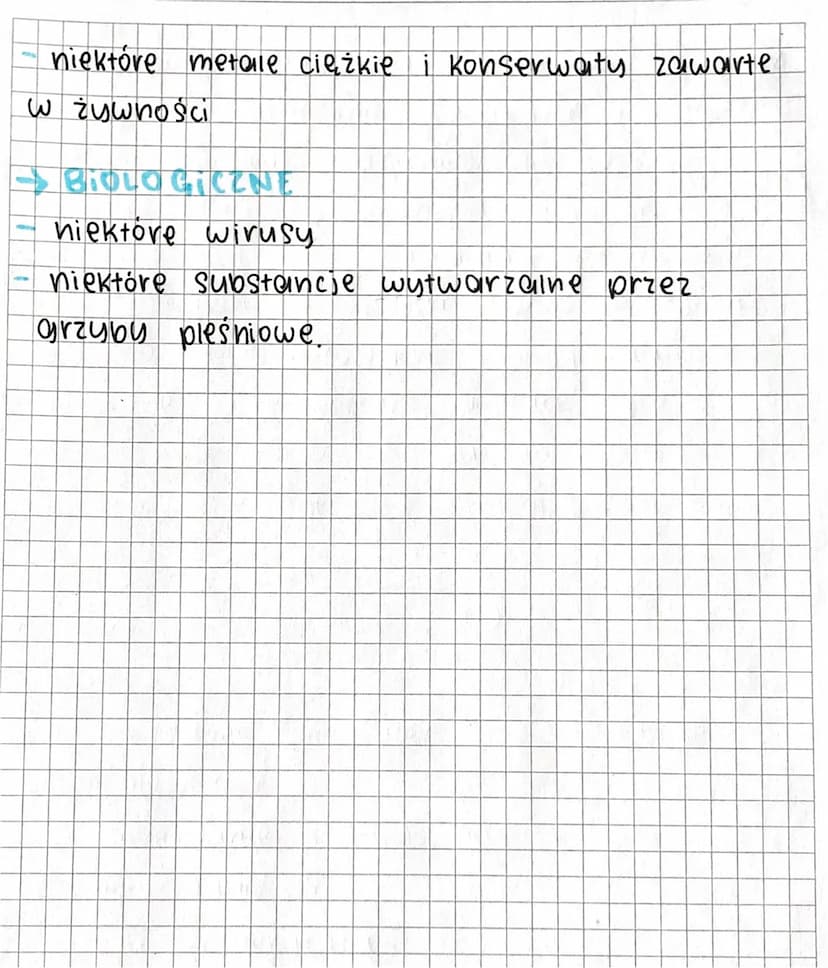 - niektóre metale ciężkie i konserwaty zawarte
w żywności
→ BiOLOGiCZNE
- niektóre wirusy
- niektóre substancje wytwarzalne przez
grzyby pleśniowe.